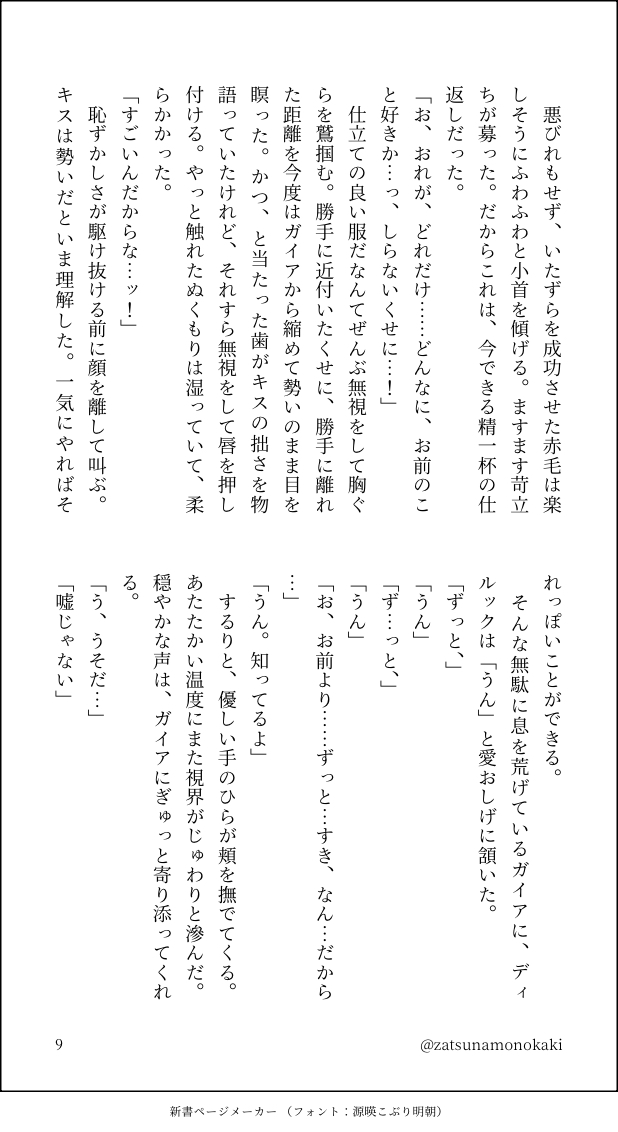 悪びれもせず、いたずらを成功させた赤毛は楽
しそうにふわふわと小首を傾げる。ますます苛立
ちが募った。だからこれは、今できる精一杯の仕
返しだった。
「お、おれが、どれだけ……どんなに、お前のこ
と好きか…っ、しらないくせに…！」
　仕立ての良い服だなんてぜんぶ無視をして胸ぐ
らを鷲掴む。勝手に近付いたくせに、勝手に離れ
た距離を今度はガイアから縮めて勢いのまま目を
瞑った。かつ、と当たった歯がキスの拙さを物
語っていたけれど、それすら無視をして唇を押し
付ける。やっと触れたぬくもりは湿っていて、柔
らかかった。
「すごいんだからな…ッ！」
　恥ずかしさが駆け抜ける前に顔を離して叫ぶ。
キスは勢いだといま理解した。一気にやればそ
れっぽいことができる。
　そんな無駄に息を荒げているガイアに、ディ
ルックは「うん」と愛おしげに頷いた。
「ずっと、」
「うん」
「ず…っと、」
「うん」
「お、お前より……ずっと…すき、なん…だから
…」
「うん。知ってるよ」
　するりと、優しい手のひらが頬を撫でてくる。
あたたかい温度にまた視界がじゅわりと滲んだ。
穏やかな声は、ガイアにぎゅっと寄り添ってくれ
る。
「う、うそだ…」
「嘘じゃない」
9
@zatsunamonokaki
新書ページメーカー（フォント：源暎こぶり明朝）